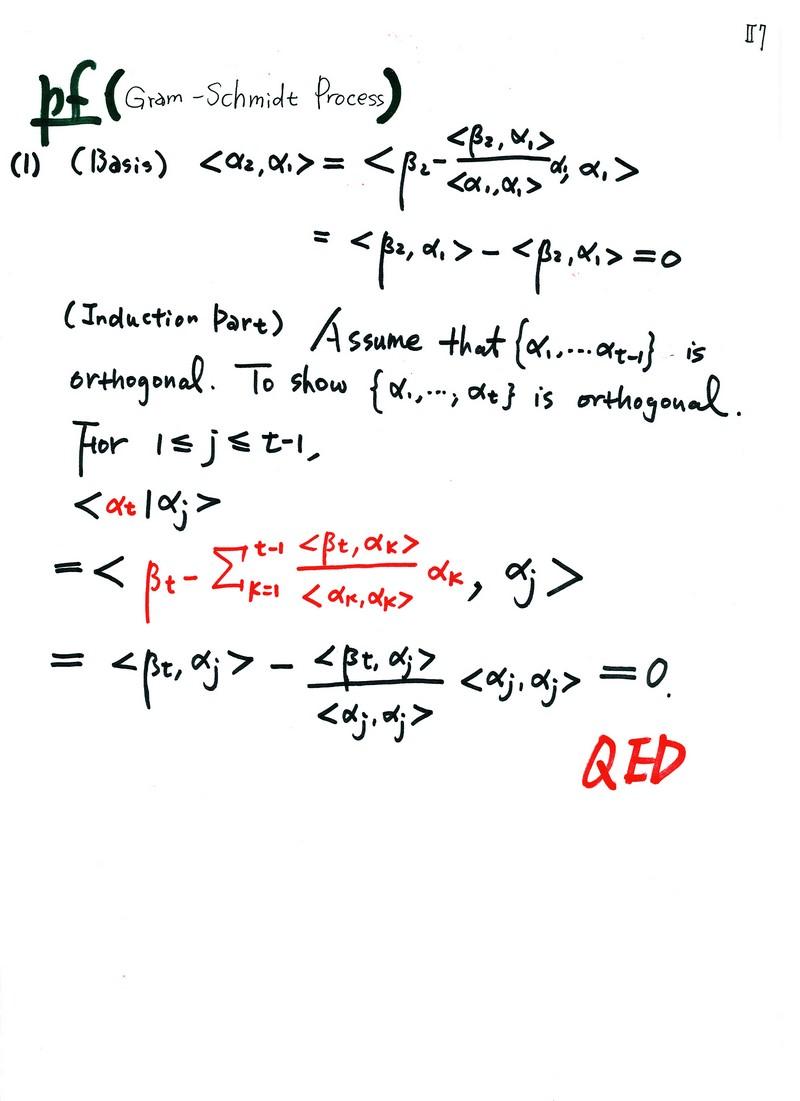 II7
pf (Gram-Schmidt Process)
(1) (Basis) <α₂,α₁> = <β₂ - <β₂,α₁>/<α₁,α₁> α₁, α₁>
= <β₂,α₁> - <β₂,α₁> = 0
(Induction Part) Assume that {α₁,...α_{t-1}} is
orthogonal. To show {α₁,...,α_t} is orthogonal.
For 1 ≤ j ≤ t-1,
<α_t|α_j>
= < β_t - Σ_{k=1}^{t-1} <β_t,α_k>/<α_k,α_k> α_k, α_j >
= <β_t,α_j> - <β_t,α_j>/<α_j,α_j> <α_j,α_j> = 0.
QED